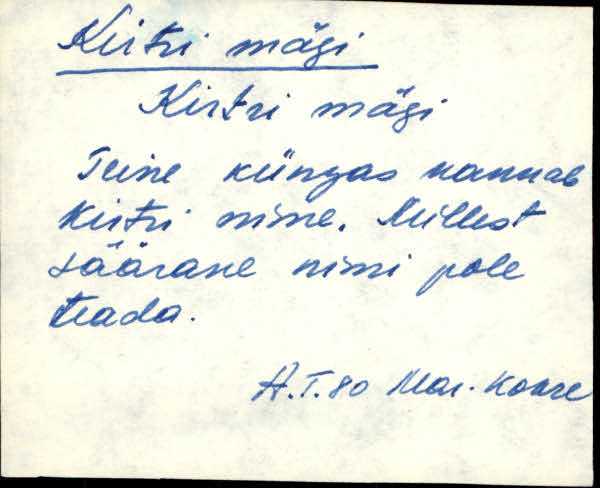 Kirtri mägi
Kirtri mägi
Teine küngas kannab
Kirtri nime. Millest
säärane nimi pole
teada.
A.T.80 Mar. Koare